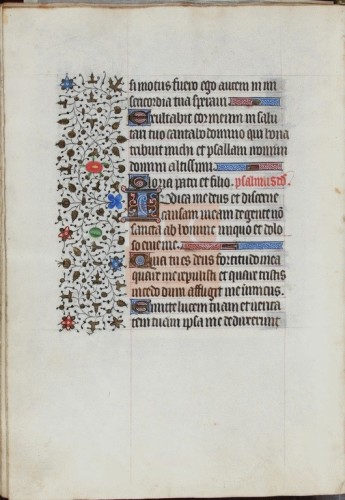 si motus fuero ego autem in mi
sericordia tua speravi.
Exultabit cor meum in salu
tari tuo cantabo domino qui bona
tribuit michi et psallam nomini
domini altissimi.
Gloria patri et filio. psalmus
Iudica me deus et discerne
causam meam de gente non
sancta ab homine iniquo et dolo
so erue me.
Quia tu es deus fortitudo mea
quare me repulisti et quare tristis
incedo dum affligit me inimicus.
Emitte lucem tuam et verita
tem tuam ipsa me deduxerunt